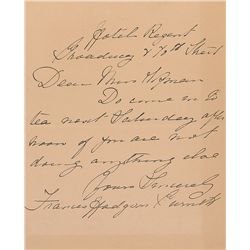 Hotel Regent
Broadway & 70th Street
Dear Miss Hyman
Do come in to
tea next Saturday after
noon if you are not
doing anything else
Yours Sincerely
Frances Hodgson Burnett